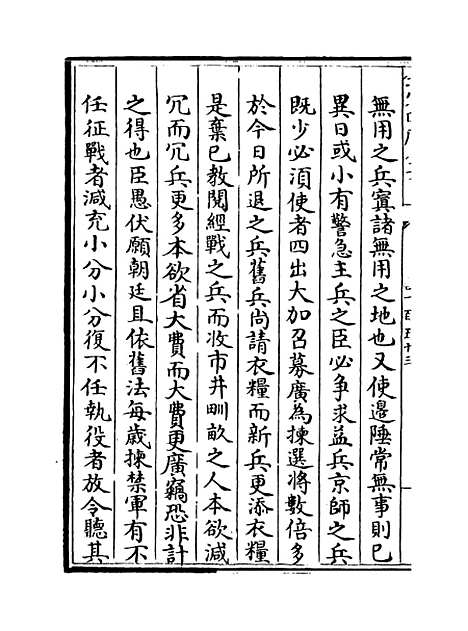 無用之兵寘諸無用之地也又使邊陲常無事則已
異日或小有警急主兵之臣必争求益兵京師之兵
既少必湏使者四出大加召募廣為揀選將數倍多
於今日所退之兵舊兵尚請衣糧而新兵更添衣糧
是棄已教閲經戰之兵而收市井甽畝之人本欲減
冗而冗兵更多本欲省大費而大費更廣竊恐非計
之得也臣愚伏願朝廷且依舊法每歲揀禁軍有不
任征戰者減充小分小分復不任執役者放令聽其